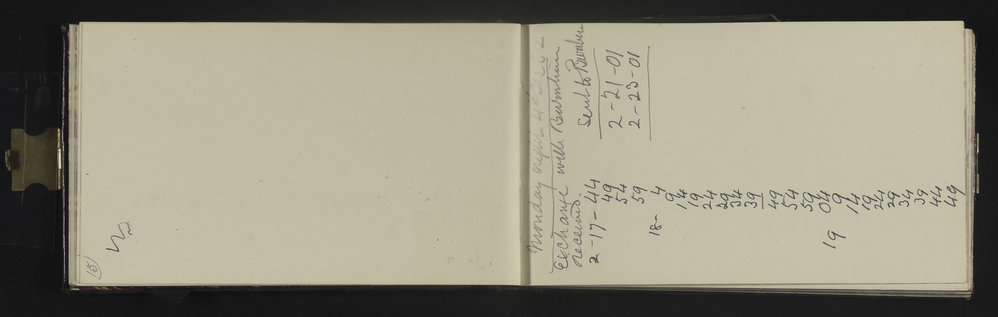 15
Monday night 4th
Exchange with Burnham
received. Sent to Burnham
2-17-44
49
54 2-21-01
59 2-23-01
18- 4
9
14
19
24
29
34
39
—
49
54
59
19 04
9
14
19
24
29
34
39
44
49